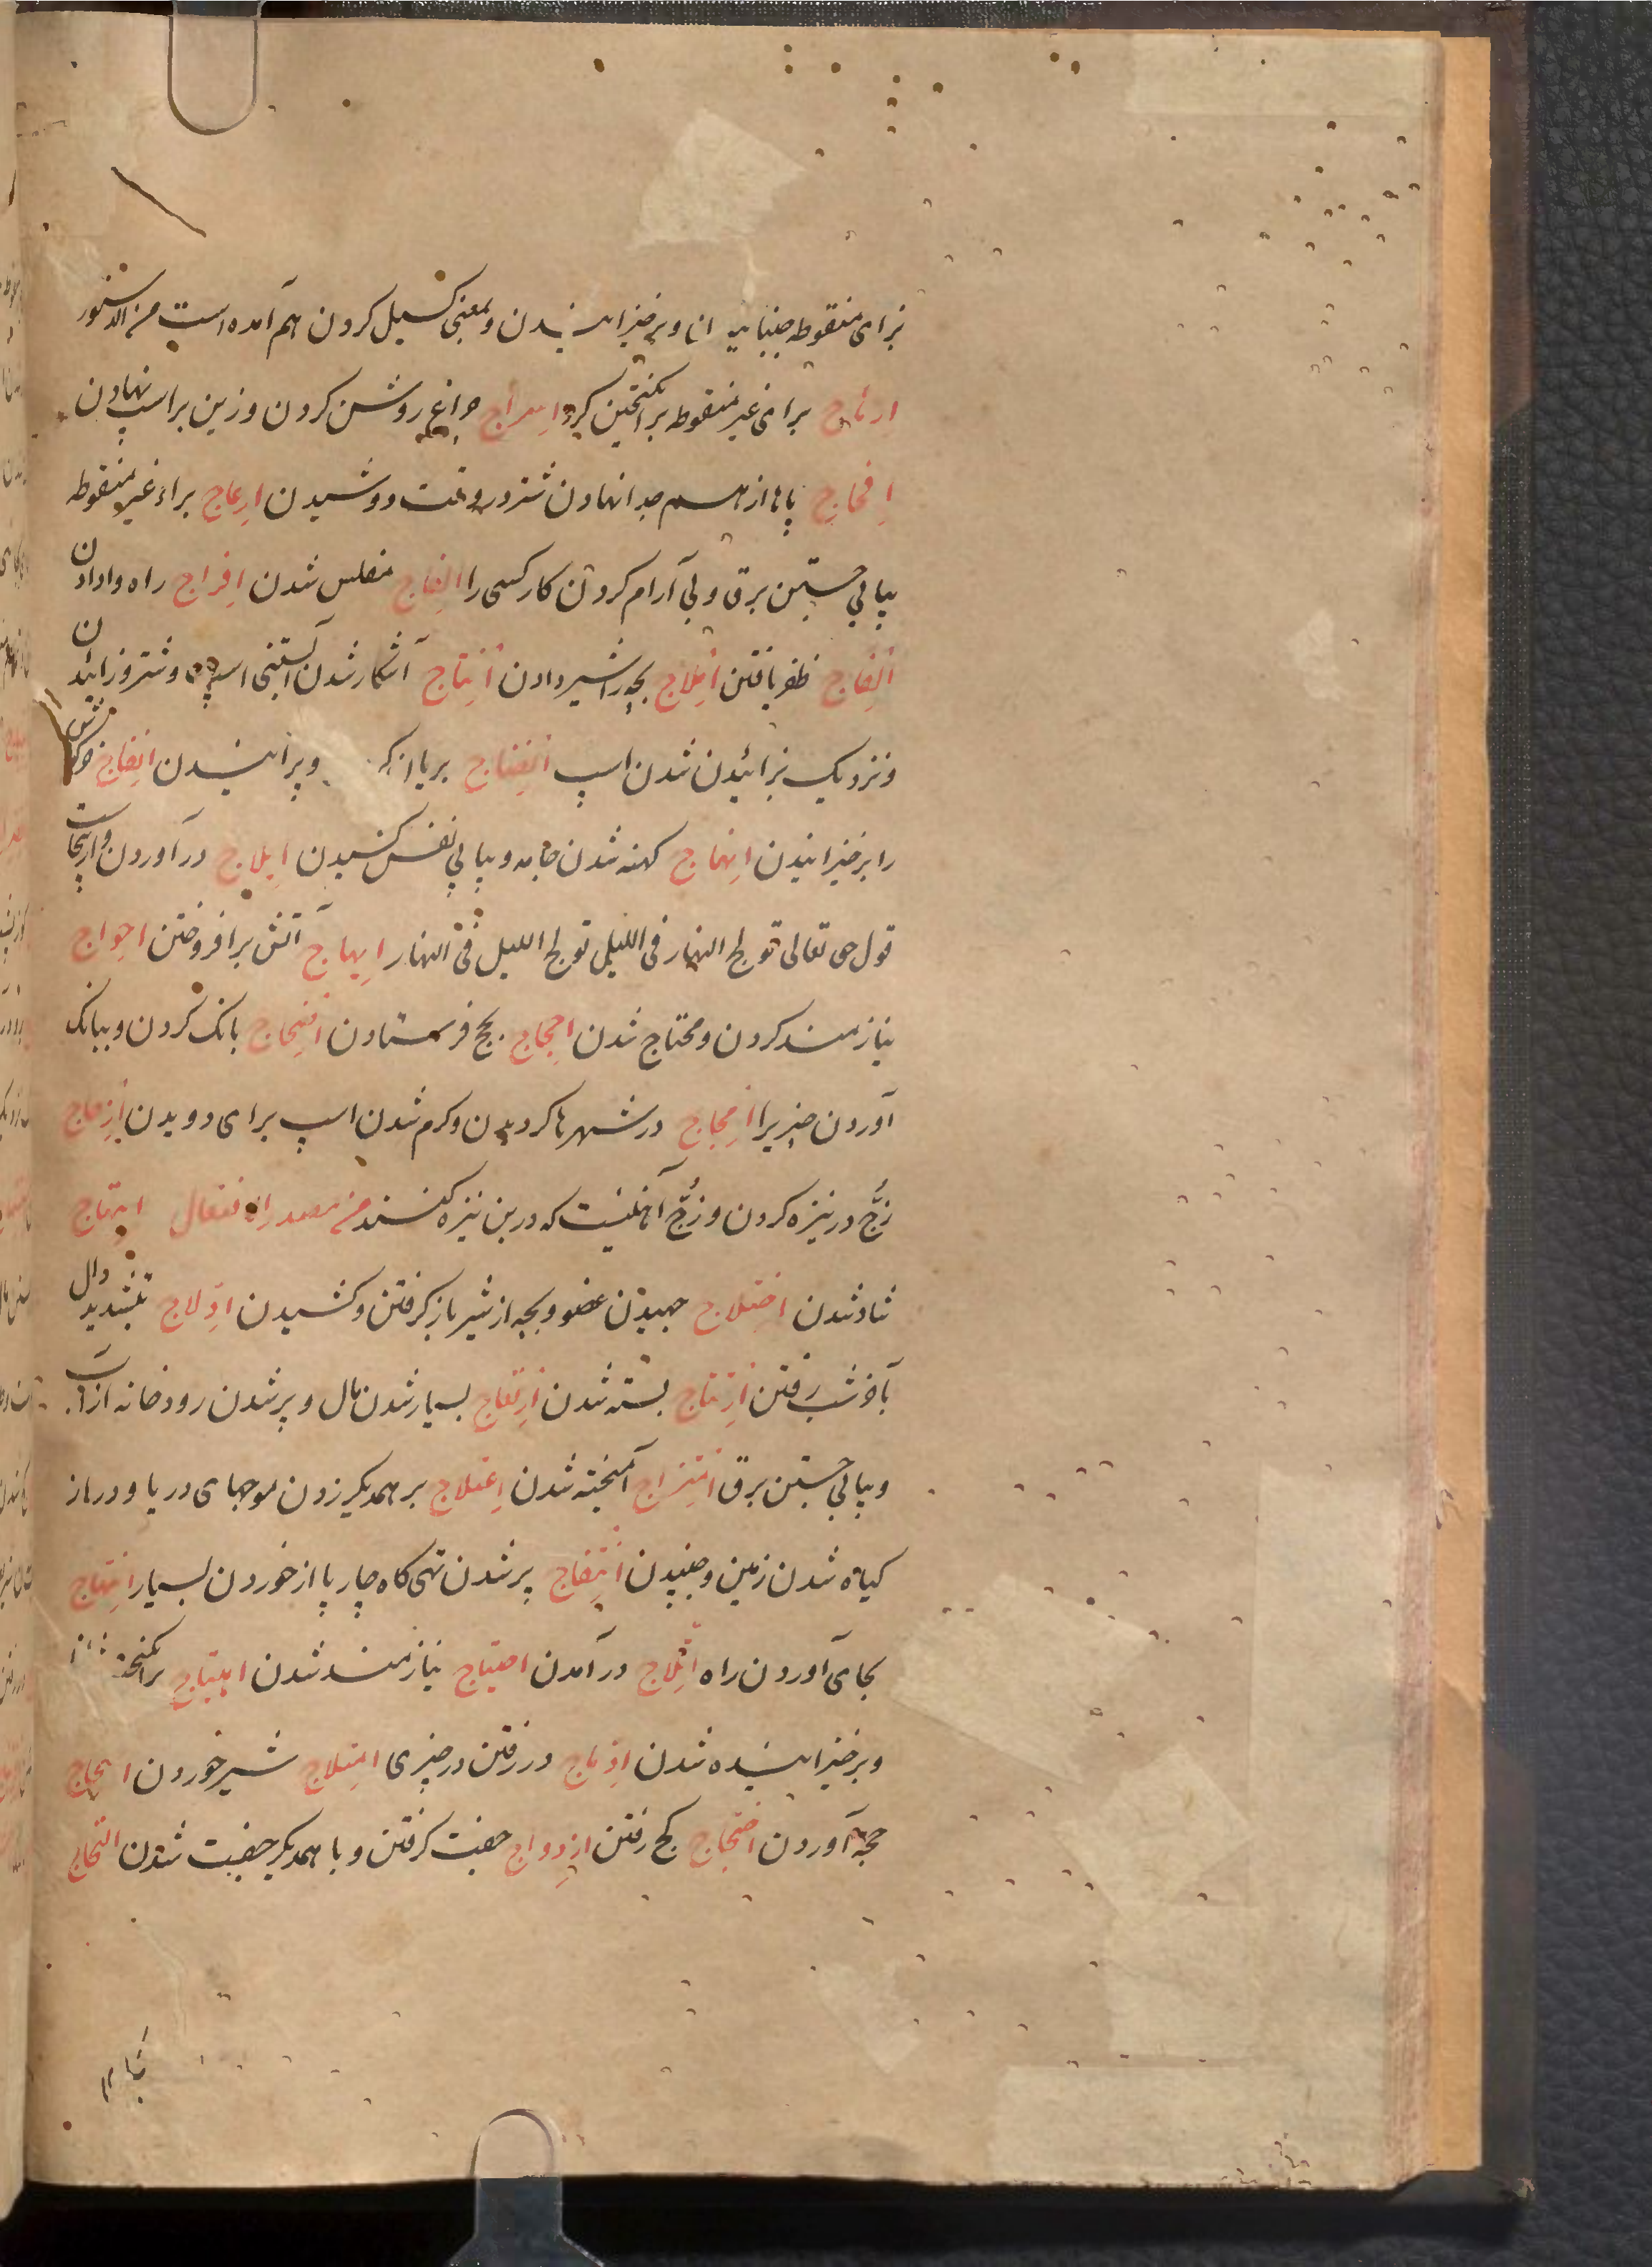 بزای منقوطه جنبانیدن و برخیزانیدن و بمعنی گسیل کردن هم آمده است من الدستور
ارهاج برای غیر منقوطه برانگیختن گرد اسراج چراغ روشن کردن و زین بر اسپ نهادن
افحاج پایها از هم جدا نهادن شتر در وقت دوشیدن ارعاج براء غیر منقوطه
پیاپی جستن برق و بی آرام کردن کار کسی را الفاج مفلس شدن افراج راه وادادن
افلاج ظفر یافتن املاج بچه را شیر دادن انتاج آشکار شدن آبستنی اسپ و شتر و زائیدن
و نزدیک بزائیدن شدن اسپ انضاج بریان و پزانیدن انفاج خرگوش
را برخیزانیدن انهاج کهنه شدن جامه و پیاپی نفس کشیدن ایلاج در آوردن و ازینجاست
قول حق تعالی تولج النهار فی اللیل تولج اللیل فی النهار ایهاج آتش برافروختن احواج
نیازمند کردن و محتاج شدن احجاج بحج فرستادن اضجاج بانک کردن و ببانک
آوردن چیزیرا امجاج در شهرها کردیدن و کرم شدن اسپ برای دویدن ازجاج
زُجّ در نیزه کردن و زُجّ آهنیست که در بن نیزه کنند من مصدر افتعال ابتهاج
شاد شدن اختلاج جهیدن عضو و بچه از شیر باز کرفتن و کشیدن ادّلاج بتشدید دال
بآخر شب رفتن ارتتاج بسته شدن ارتعاج بسیار شدن مال و پر شدن رودخانه از آب
و پیاپی جستن برق امتزاج آمیخته شدن اعتلاج بر همدیگر زدن موجهای دریا و دراز
کیاه شدن زمین و جنبیدن انتفاج پر شدن تهی کاه چارپا از خوردن بسیار انتهاج
بجای آوردن راه اتّلاج در آمدن احتیاج نیازمند شدن اهتیاج برانگیخته
و برخیزانیده شدن ادّماج در رفتن در چیزی امتلاج شیر خوردن احتجاج
حجة آوردن کج رفتن ازدواج جفت کرفتن و با همدیگر جفت شدن